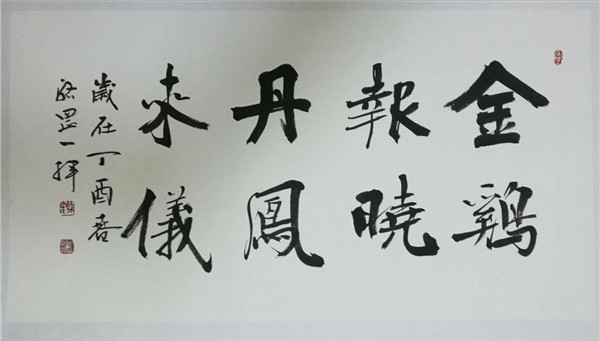 金鷄
報曉
丹鳳
來儀
歲在丁酉春
一揮